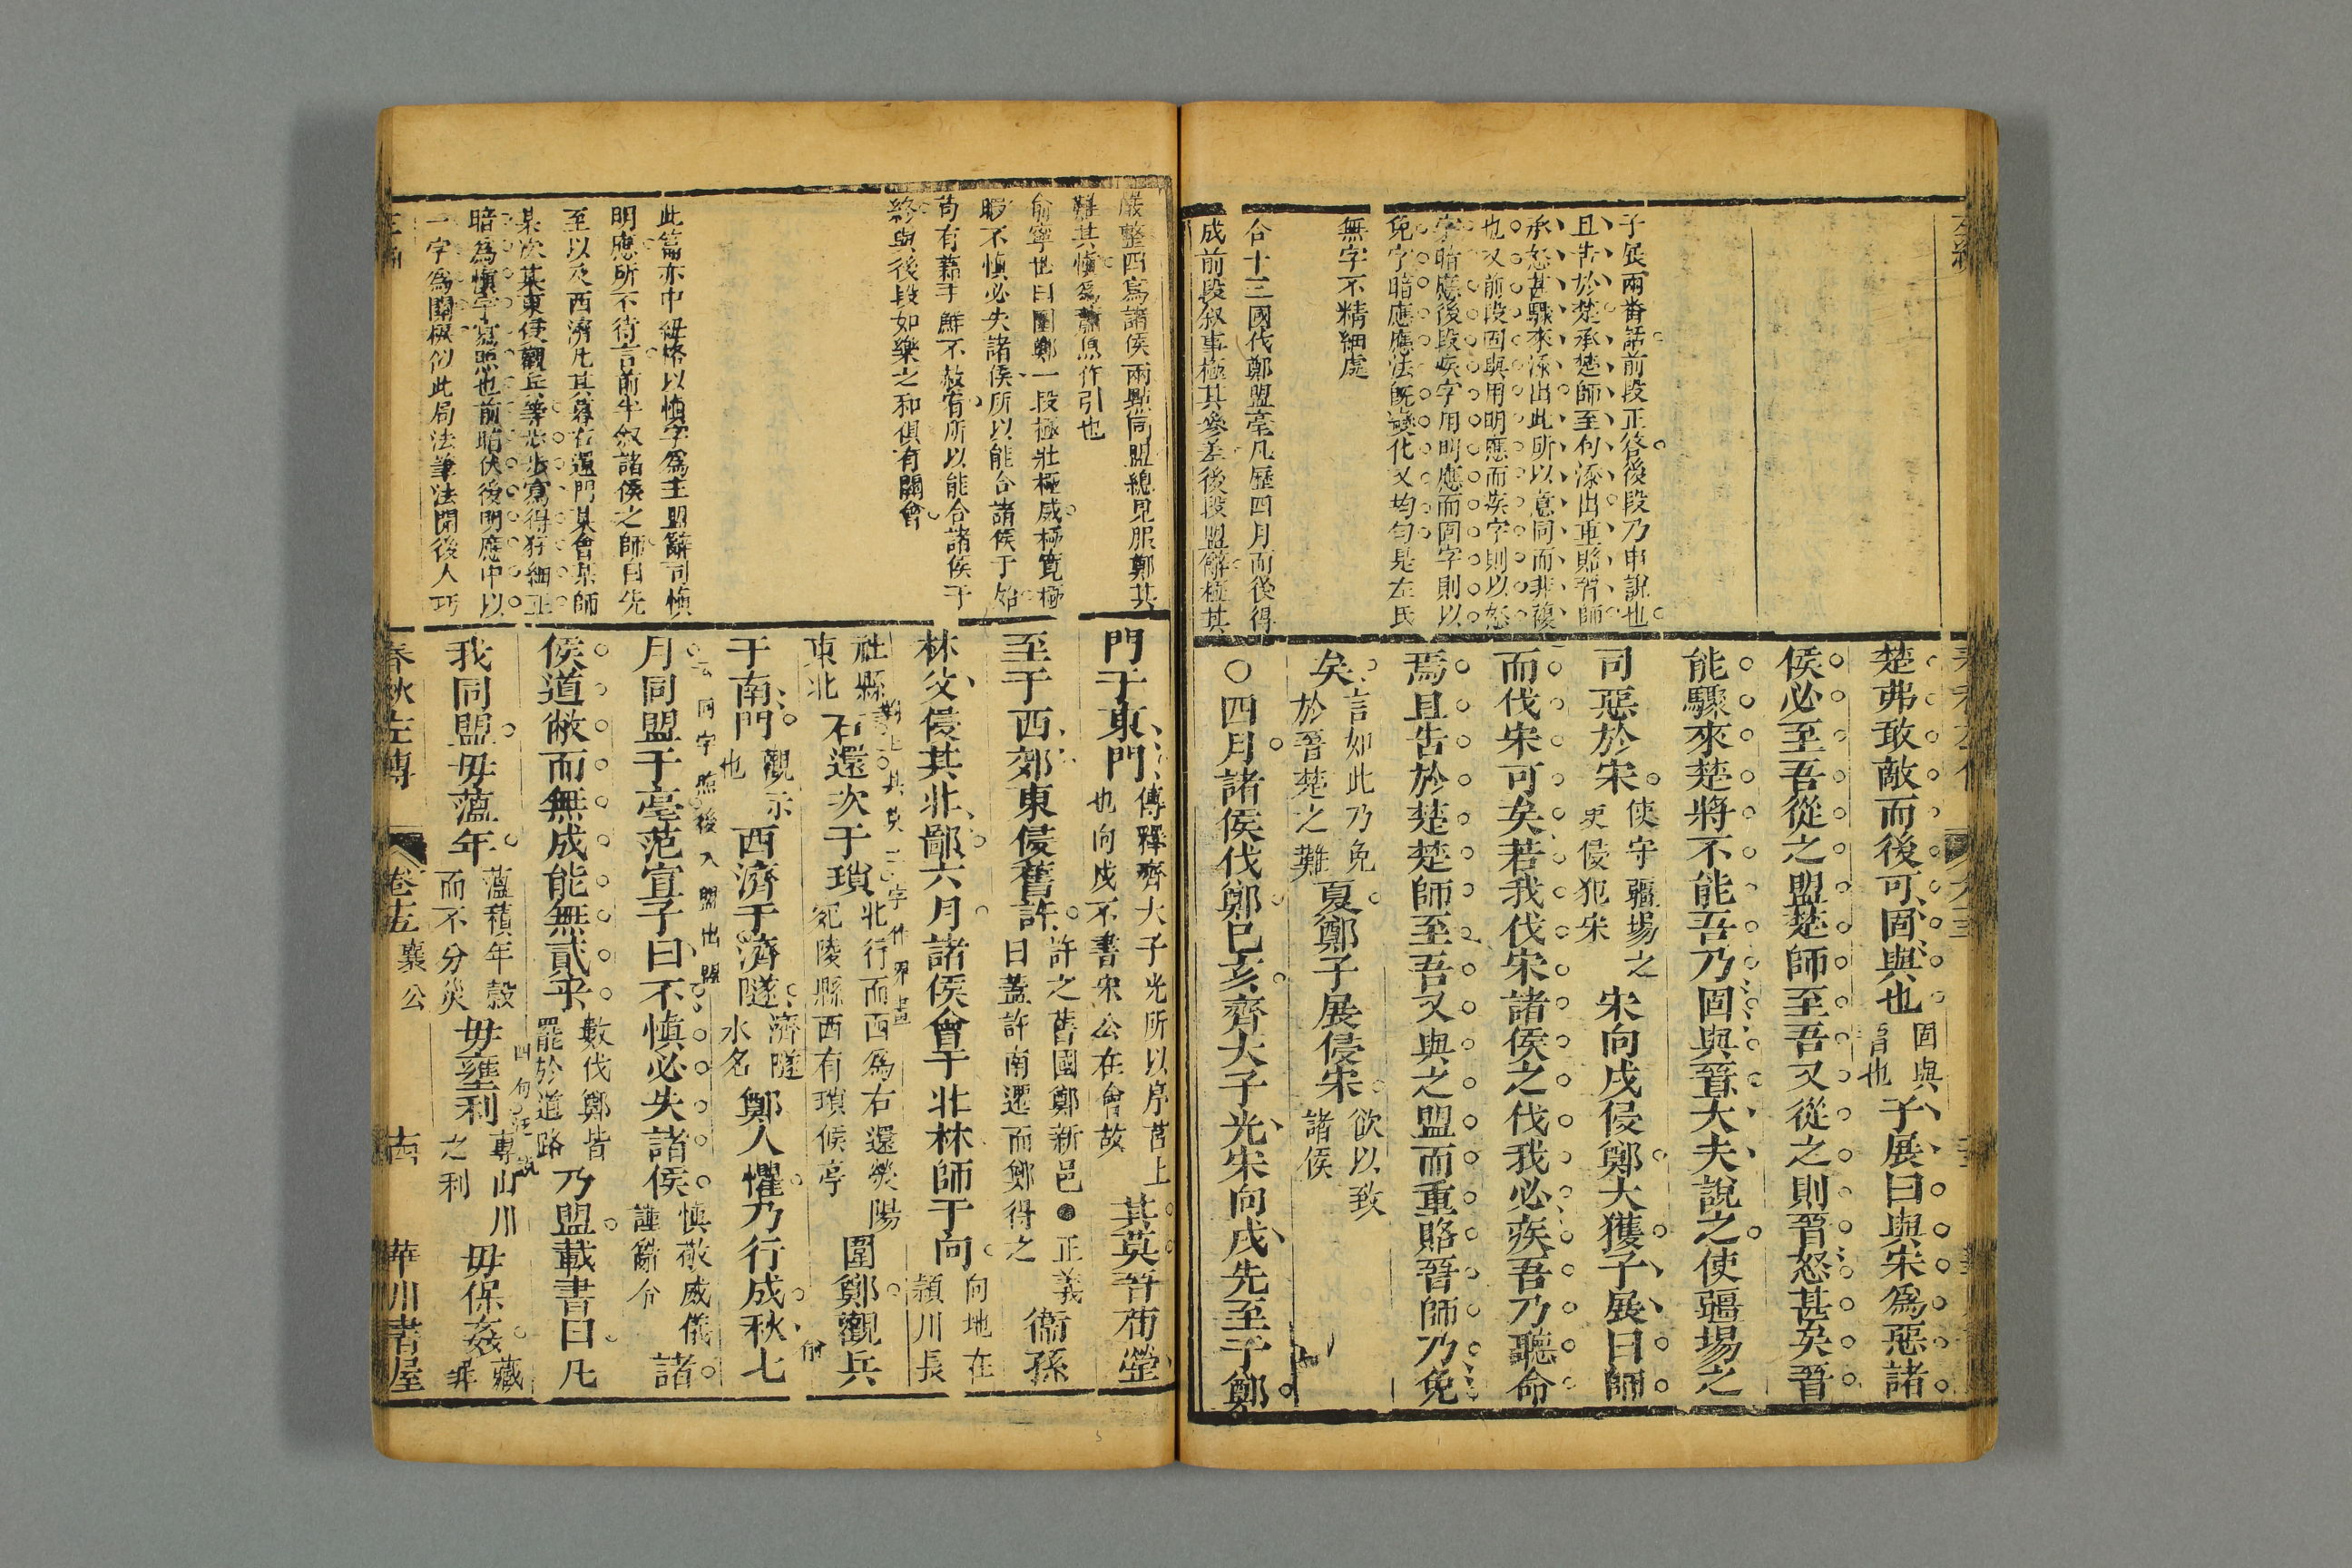 子展兩番話前段正答後段乃申說也
且告於楚承楚師至句添出重賂晉師
承怒甚驟來添出此所以意同而非複
也又前段固與用明應而疾字則以怒
字暗應後段疾字用明應而固字則以
免字暗應應法既變化又均勻是左氏
無字不精細處
合十三國伐鄭盟亳凡歷四月而後得
成前段叙事極其參差後段盟辭極其
楚弗敢敵而後可固與也
固與
晉也
子展曰與宋為惡諸
侯必至吾從之盟楚師至吾又從之則晉怒甚矣晉
能驟來楚將不能吾乃固與晉大夫說之使疆埸之
司惡於宋
使守疆埸之
吏侵犯宋
宋向戌侵鄭大獲子展曰師
而伐宋可矣若我伐宋諸侯之伐我必疾吾乃聽命
焉且告於楚楚師至吾又與之盟而重賂晉師乃免
矣
言如此乃免
於晉楚之難
夏鄭子展侵宋
欲以致
諸侯
○四月諸侯伐鄭己亥齊大子光宋向戌先至于鄭
嚴整四寫諸侯兩點同盟總見服鄭其
難其慎為蕭魚作引也
俞寧世曰圍鄭一段極壯極威極寬極
暇不慎必失諸侯所以能合諸侯于始
苟有藉手鮮不赦宥所以能合諸侯于
終與後段如樂之和俱有關會
此篇亦中紐格以慎字為主盟辭司慎
明應所不待言前半叙諸侯之師自先
至以及西濟凡其莫右還門某會某師
某次某東侵觀兵等步步寫得狩細正
暗為慎字寫照也前暗伏後明應中以
一字為關棙似此局法筆法開後人巧
門于東門
傳釋齊大子光所以序莒上
也向戌不書宋公在會故
其莫晉荀罃
至于西郊東侵舊許
許之舊國鄭新邑●正義
曰蓋許南遷而鄭得之
衞孫
林父侵其北鄙六月諸侯會于北林師于向
向地在
潁川長
社縣
東北
右還次于瑣
北行而西為右還滎陽
宛陵縣西有瑣候亭
圍鄭觀兵
于南門
觀示
也
西濟于濟隧
濟隧
水名
鄭人懼乃行成秋七
同字照後入盟出盟
月同盟于亳范宣子曰不慎必失諸侯
慎敬威儀
謹辭令
諸
侯道敝而無成能無貳乎
數伐鄭皆
罷於道路
乃盟載書曰凡
我同盟毋薀年
薀積年穀
而不分災
毋壅利
專山川
之利
毋保姦
藏
春秋左傳
卷
襄公
華川書屋